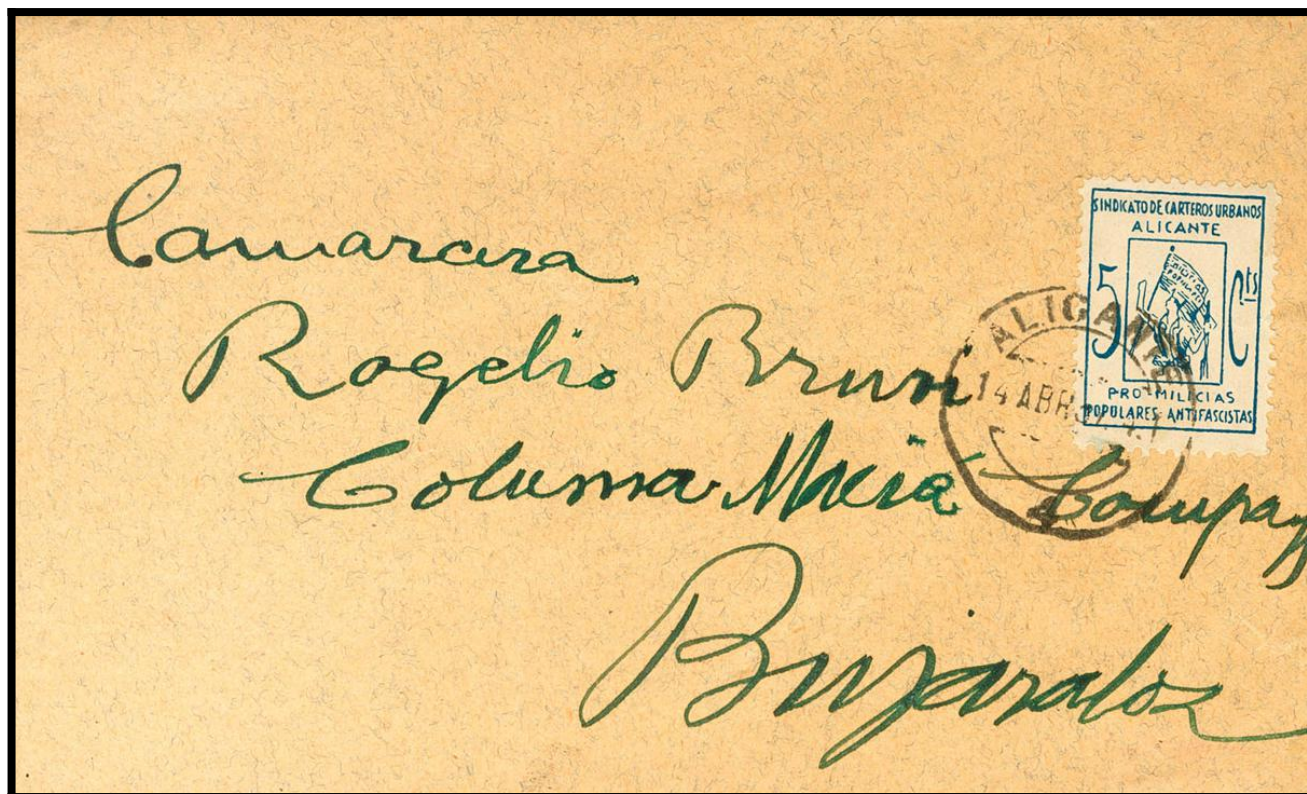 Camarara
Rogelio Brun
Columna Maciá Compay
Bujaraloz
SINDIKATO DE CARTEROS URBANOS
ALICANTE
5 Cts
MILICIAS
POPULARES
PRO-MILICIAS
POPULARES-ANTIFASCISTAS
ALICANTE
14 ABR